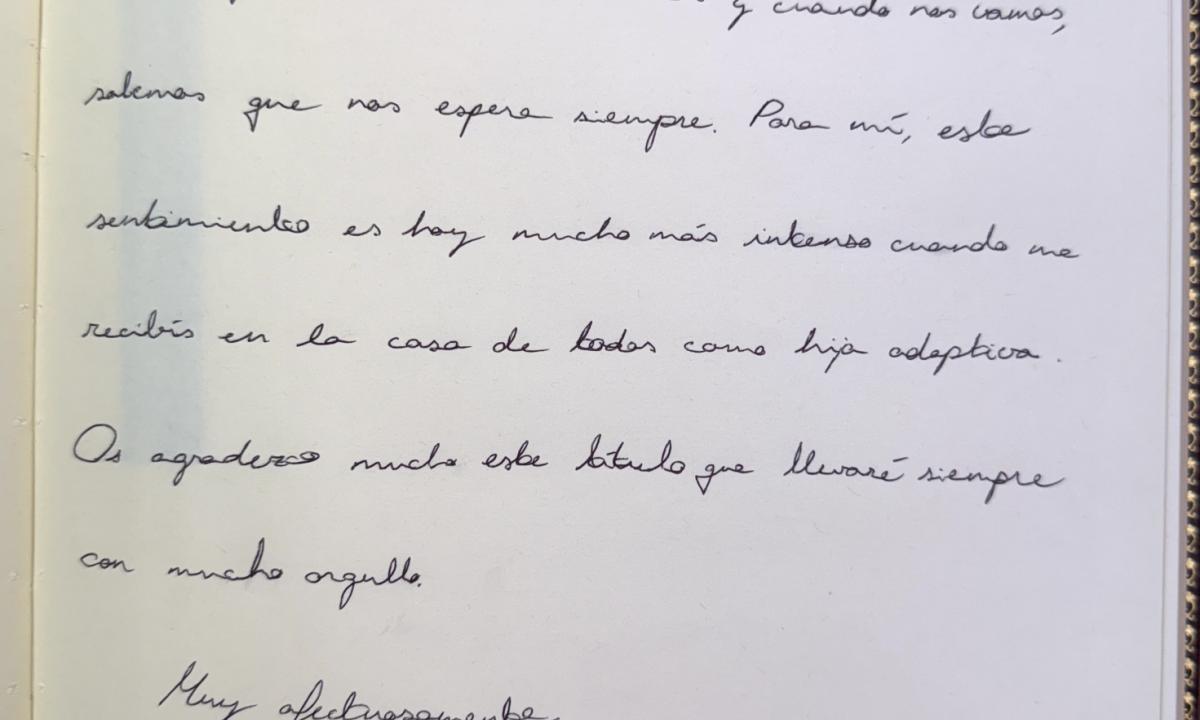 y cuando nos vamos,
sabemos que nos espera siempre. Para mí, este
sentimiento es hoy mucho más intenso cuando me
recibís en la casa de todos como hija adoptiva.
Os agradezco mucho este título que llevaré siempre
con mucho orgullo.
Muy afectuosamente,